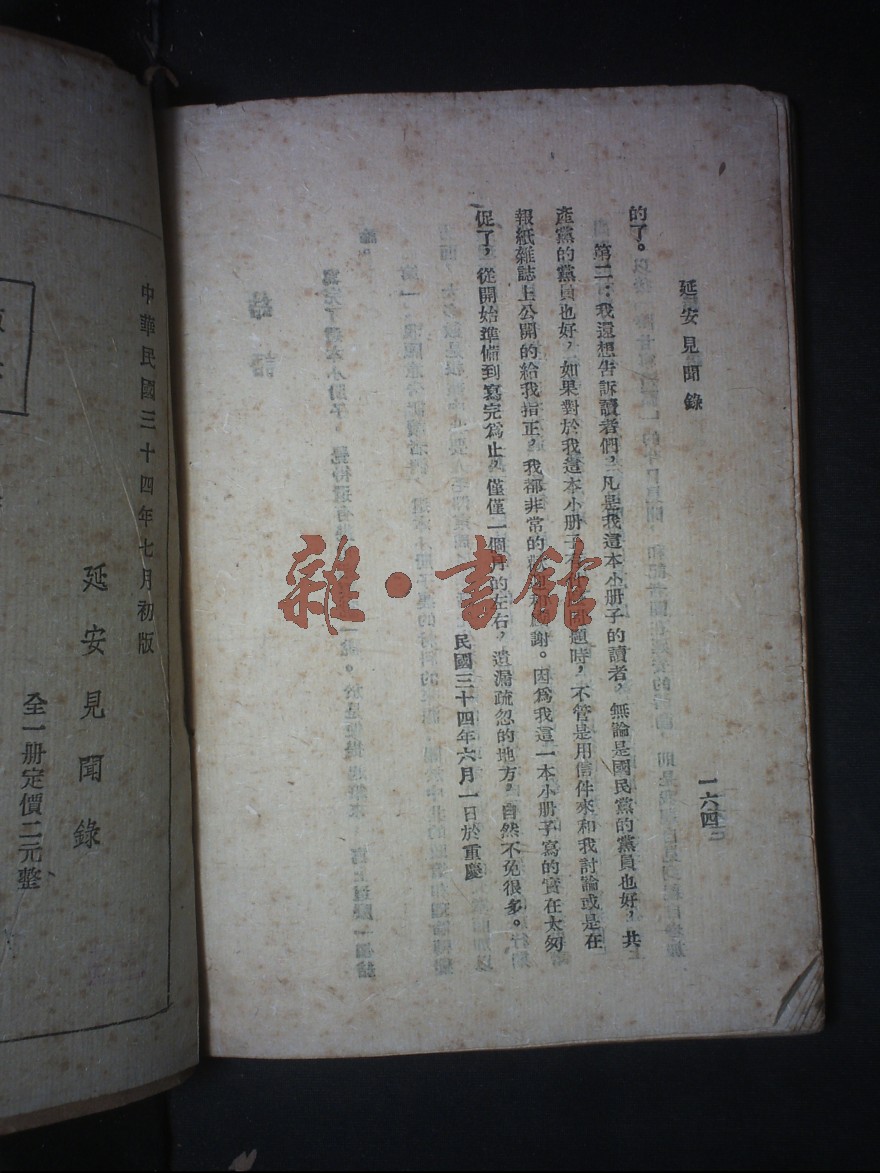 延安見聞錄
一六四
的了。
第二：我還想告訴讀者們，凡是我這本小册子的讀者，無論是國民黨的黨員也好，共
產黨的黨員也好，如果對於我這本小册子有 問題時，不管是用信件來和我討論或是在
報紙雜誌上公開的給我指正，我都非常的 感謝。因爲我這一本小册子寫的實在太匆
促了，從開始準備到寫完爲止，僅僅一個月的左右，遺漏疏忽的地方，自然不免很多。
民國三十四年六月一日於重慶
中華民國三十四年七月初版
延安見聞錄
全一册定價二元整
雜·書館